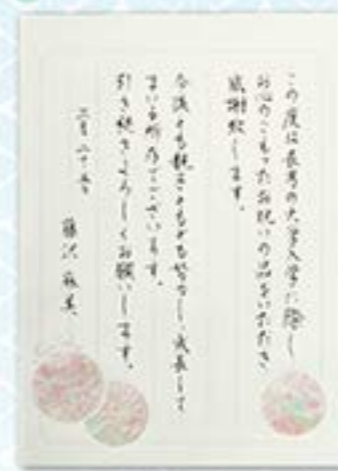 この度は長男の大学入学に際し
お心のこもったお祝いの品をいただき
感謝致します。
今後とも親子ともども努力し、成長して
まいる所存でございます。
引き続きよろしくお願いします。
三月二十五日
藤沢 麻美